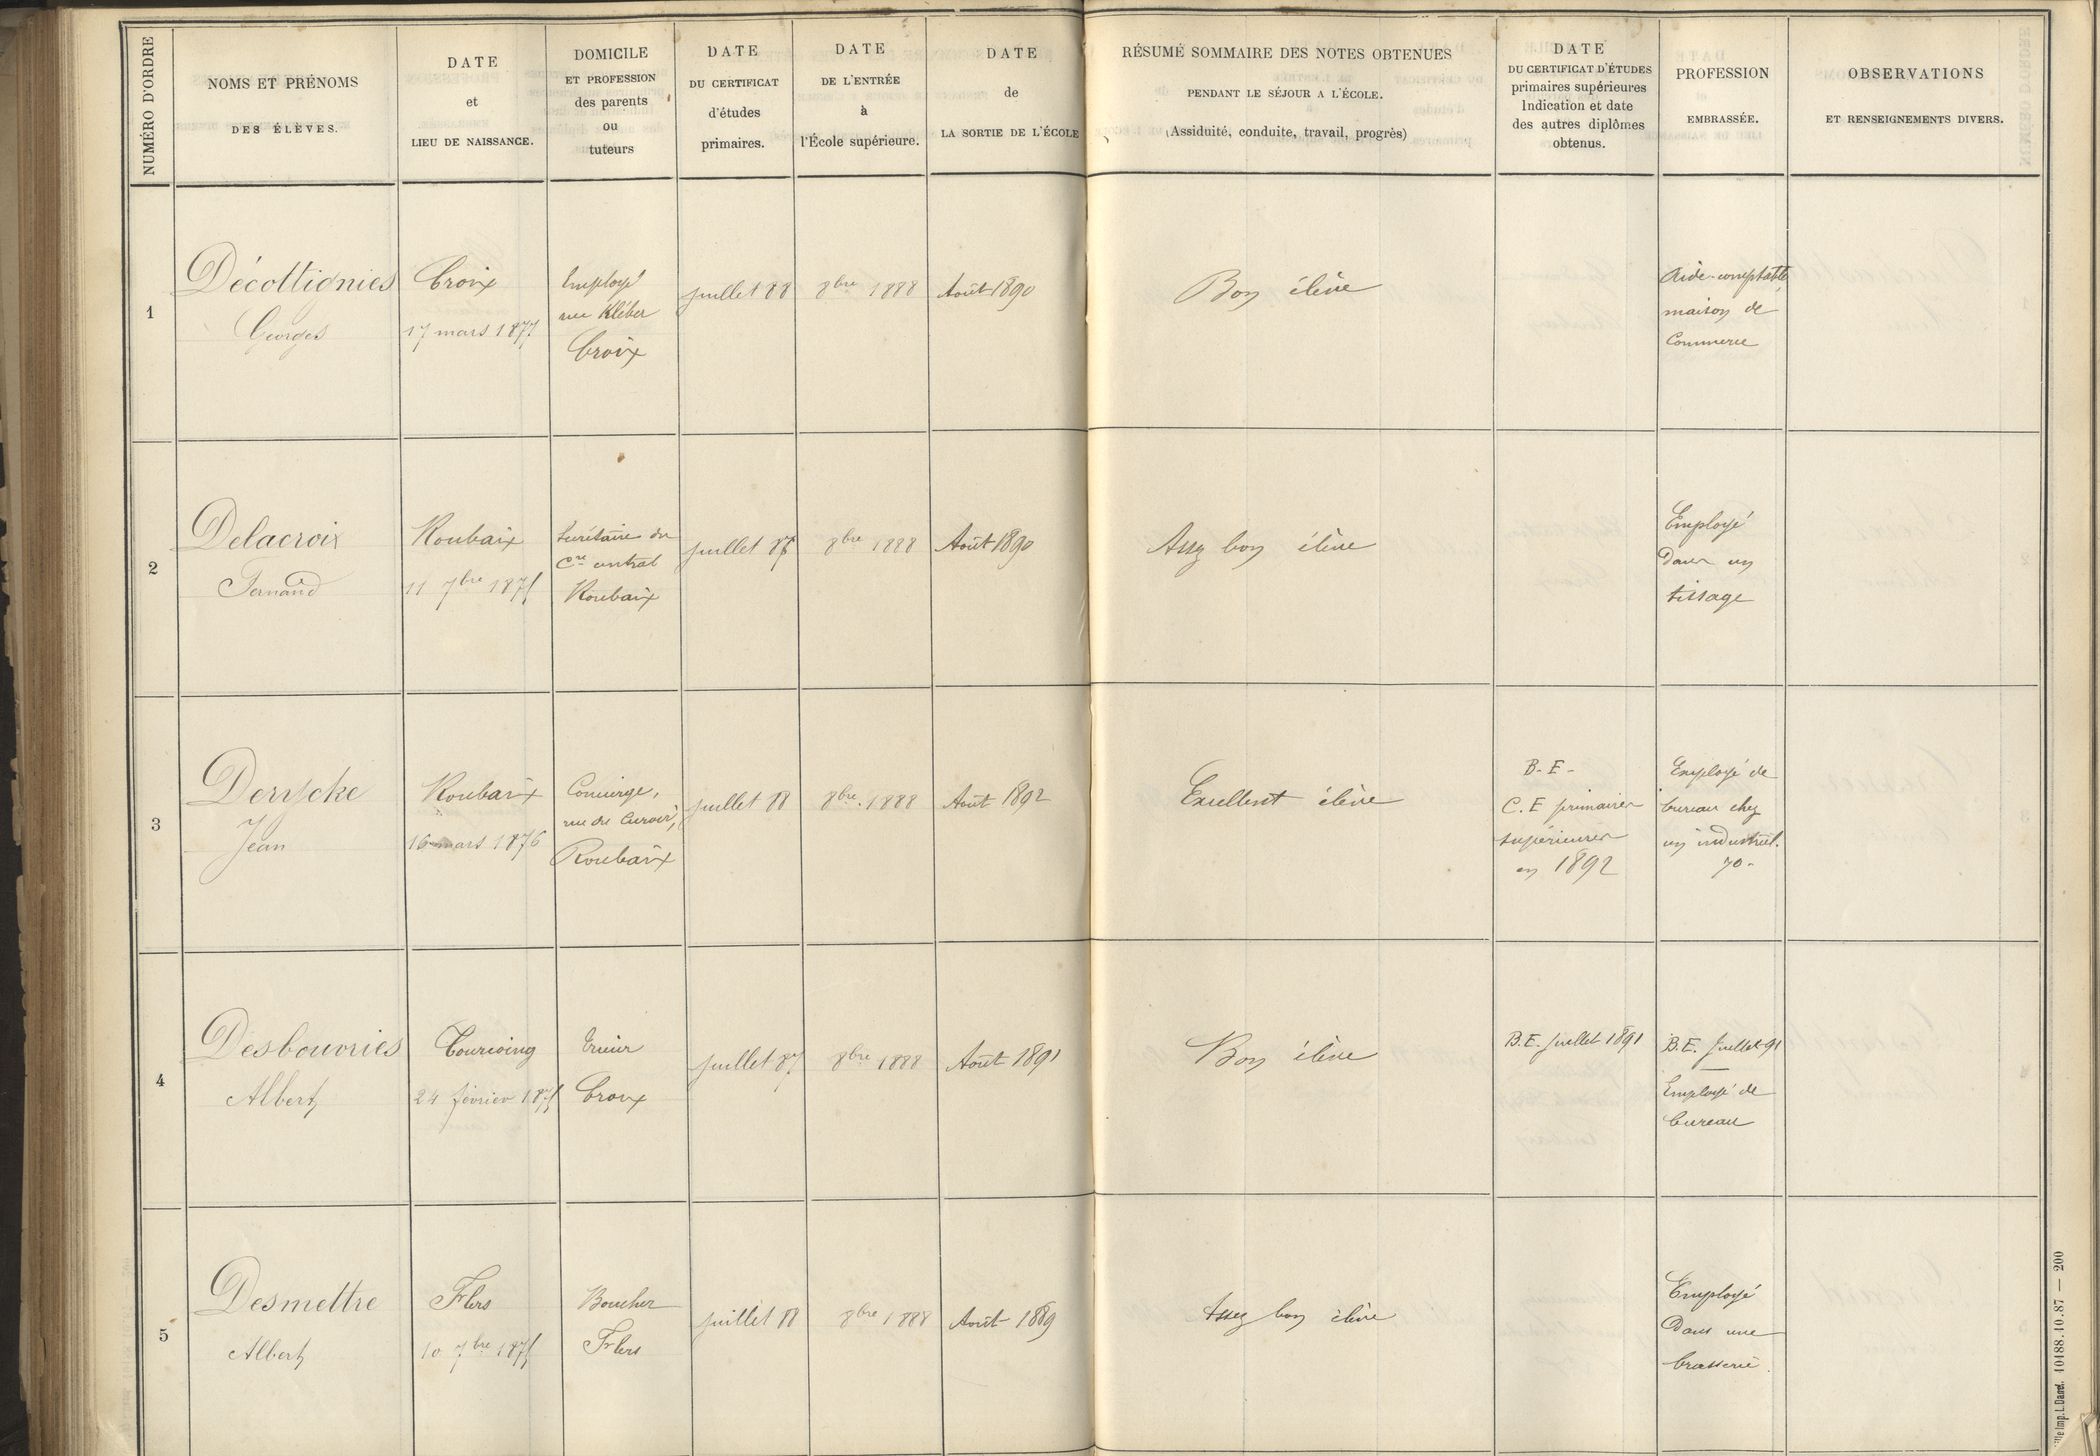 NUMÉRO D'ORDRE
NOMS ET PRÉNOMS
DES ÉLÈVES.
DATE
et
LIEU DE NAISSANCE.
DOMICILE
ET PROFESSION
des parents
ou
tuteurs
DATE
DU CERTIFICAT
d'études
primaires.
DATE
DE L'ENTRÉE
à
l'École supérieure.
DATE
de
LA SORTIE DE L'ÉCOLE
RÉSUMÉ SOMMAIRE DES NOTES OBTENUES
PENDANT LE SÉJOUR A L'ÉCOLE.
(Assiduité, conduite, travail, progrès)
DATE
DU CERTIFICAT D'ÉTUDES
primaires supérieures
Indication et date
des autres diplômes
obtenus.
PROFESSION
EMBRASSÉE.
OBSERVATIONS
ET RENSEIGNEMENTS DIVERS.
1
Décottignies
Georges
Croix
17 mars 1877
Employé
rue Kléber
Croix
juillet 88
8bre 1888
Août 1890
Bon élève
Aide-comptable
maison de
Commerce
2
Delacroix
Fernand
Roubaix
11 7bre 1875
Secrétaire du
Cre central
Roubaix
juillet 87
8bre 1888
Août 1890
Assez bon élève
Employé
dans un
tissage
3
Derycke
Jean
Roubaix
16 mars 1876
Concierge,
rue du Curoir,
Roubaix
juillet 88
8bre 1888
Août 1892
Excellent élève
B. E.
C. E primaires
supérieures
en 1892
Employé de
bureau chez
un industriel.
70-
4
Desbouvries
Albert
Tourcoing
24 février 1875
Trieur
Croix
juillet 87
8bre 1888
Août 1891
Bon élève
B.E. juillet 1891
B.E. juillet 91
Employé de
bureau
5
Desmettre
Albert
Flers
10 7bre 1875
Boucher
Flers
juillet 88
8bre 1888
Août 1889
Assez bon élève
Employé
dans une
brasserie.
Imp. L. Danel. 10188.10.87 — 200